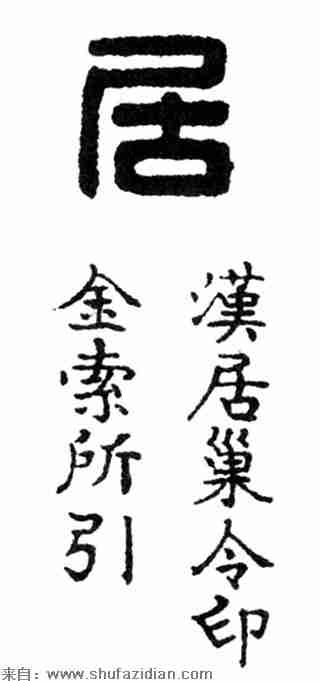 居
漢居巢令印
金索所引
来自：www.shufazidian.com